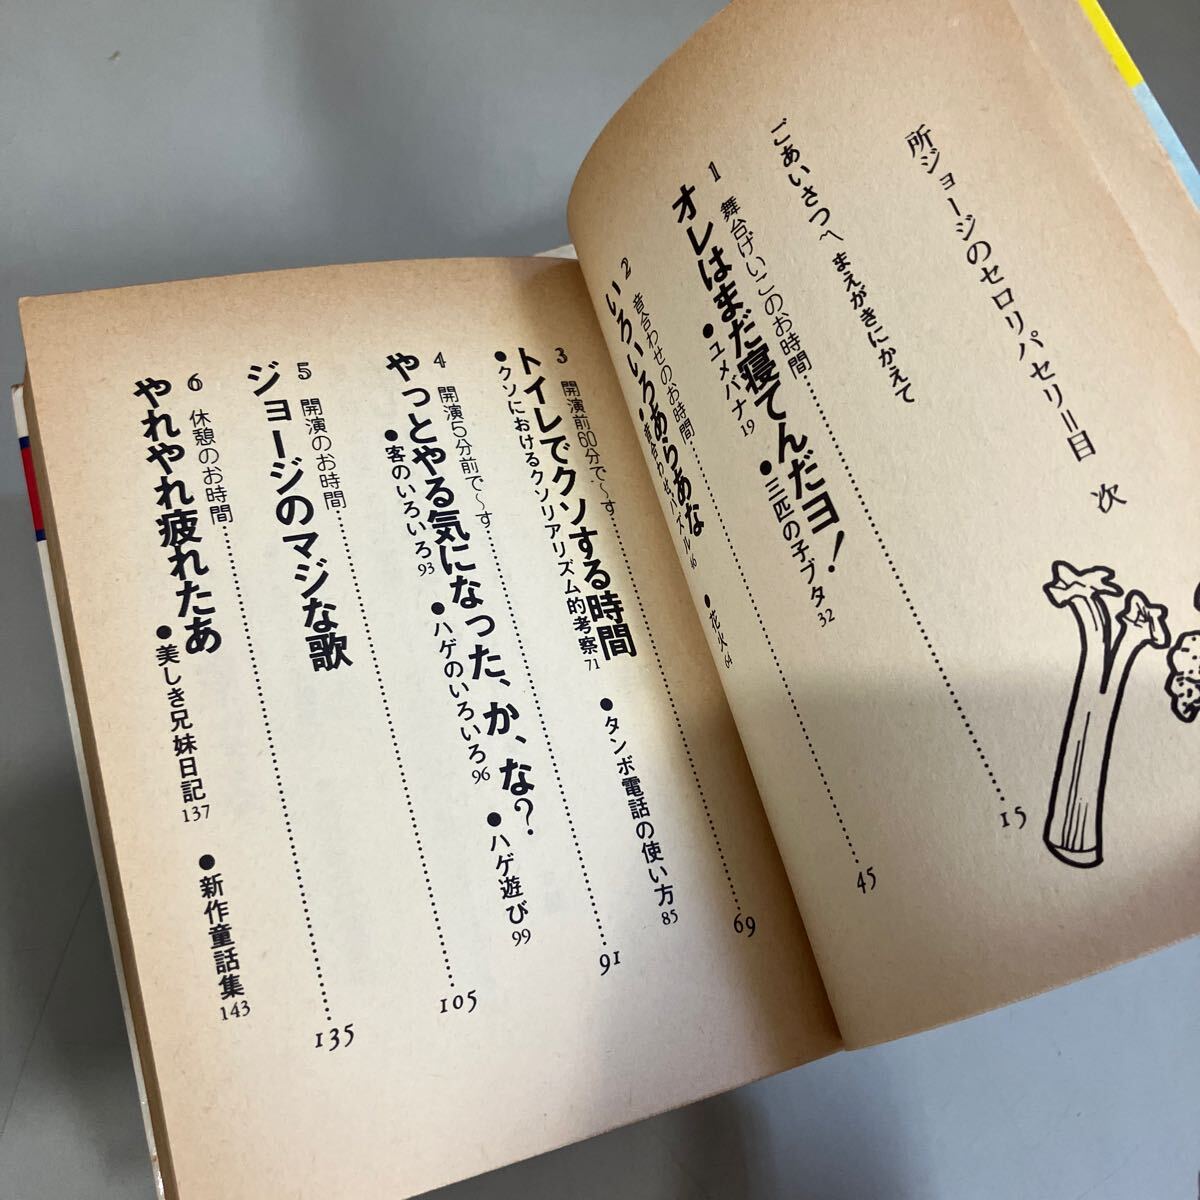 所ジョージのセロリパセリ＝目　次
ごあいさつ〜まえがきにかえて
1　舞台げいこのお時間……15
オレはまだ寝てんだヨ！
●ユメバナ19　●三匹の子ブタ32
2　音合わせのお時間……45
いろいろあらあな
●音合わせパズル46　●花火64
3　開演前60分で〜す……69
トイレでクソする時間
●クソにおけるクソリアリズム的考察71　●タンボ電話の使い方85
4　開演5分前で〜す……91
やっとやる気になった、か、な？
●客のいろいろ93　●ハゲのいろいろ96　●ハゲ遊び99
5　開演のお時間……105
ジョージのマジな歌
6　休憩のお時間……135
やれやれ疲れたあ
●美しき兄妹日記137　●新作童話集143